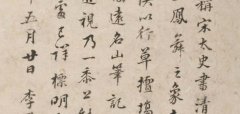 稱宋太史書清
鳳舞之象
以行草擅
遠名山筆記
近視乃一黍
已詳標明
五月廿日 李